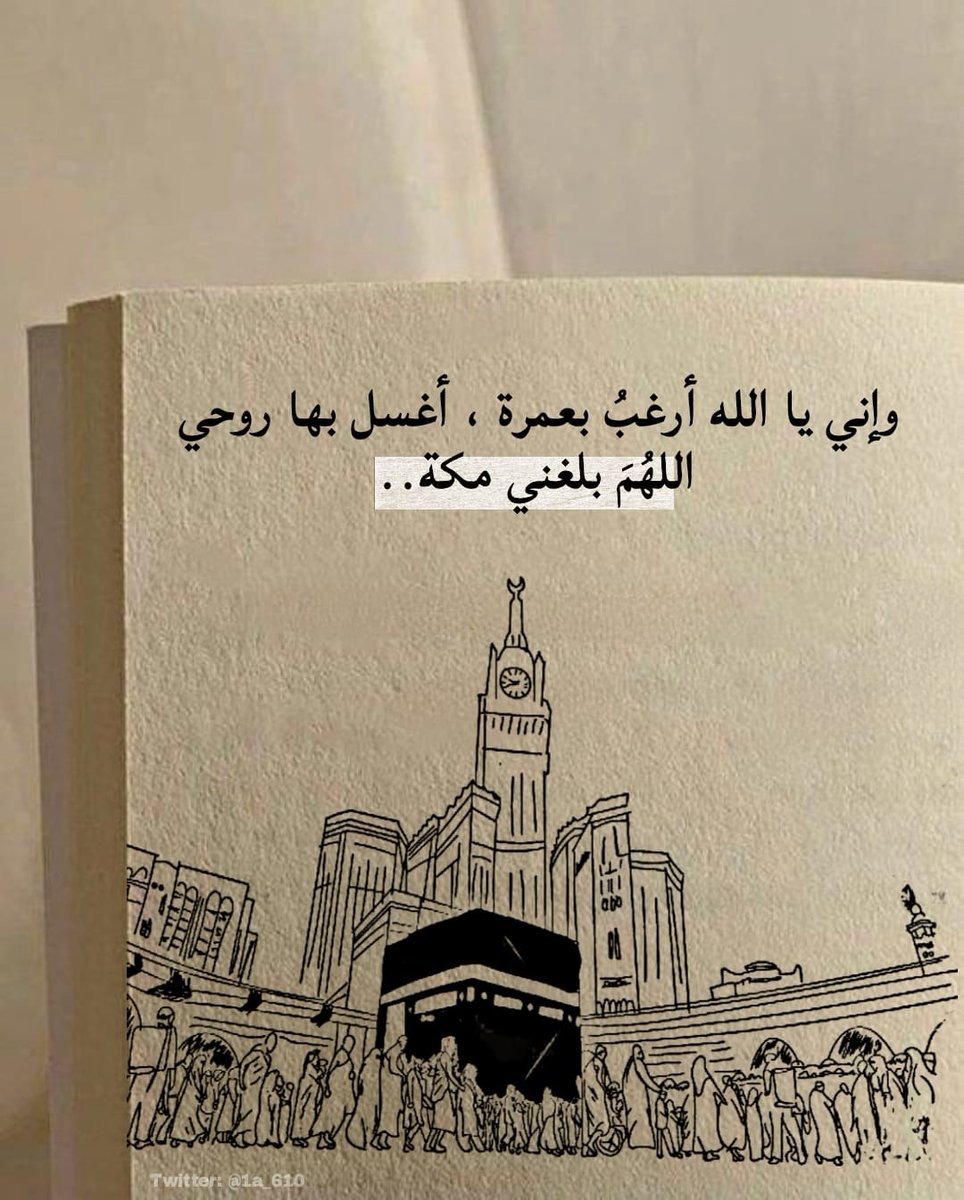 وإني يا الله أرغبُ بعمرة ، أغسل بها روحي
اللهُمَ بلغني مكة..
Twitter: @1a_610